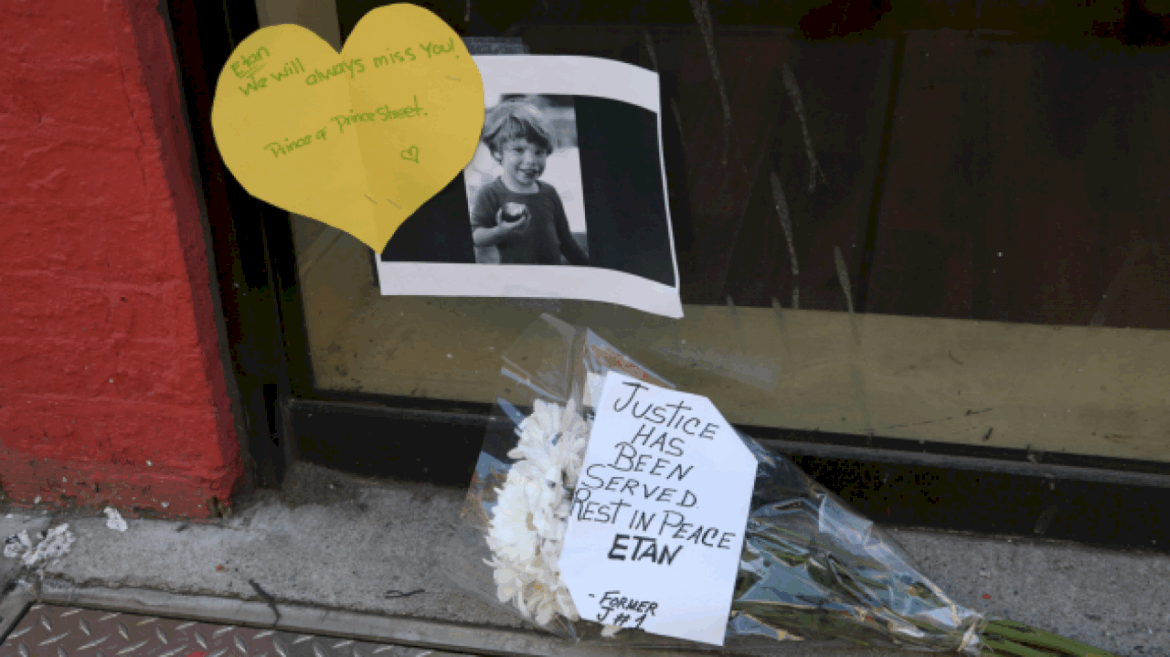 Etan
We will always miss You!
Prince of Prince Street.
JUSTICE
HAS
BEEN
SERVED
REST IN PEACE
ETAN
- FORMER
J#1